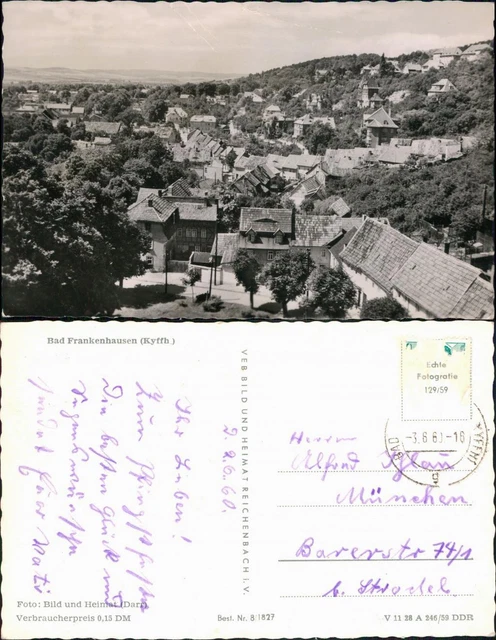 Bad Frankenhausen (Kyffh.)
D. 2.6.60.
Ihr Lieben!
Zum Pfingstfeste
Die besten Glück und
Segenswünsche
sendet Euer Vati
VEB BILD UND HEIMAT REICHENBACH i. V.
Echte
Fotografie
129/59
BAD
KYFFH
-3.6.60-18
Herrn
Alfred Blau
München
Barerstr 74/1
b. Strobel
Foto: Bild und Heimat (Darr)
Verbraucherpreis 0,15 DM
Best. Nr. 8/1827
V 11 28 A 246/59 DDR